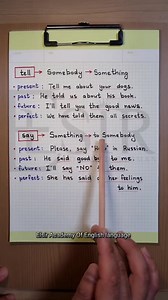 tell → Somebody → Something
• present: Tell me about your dogs.
• past: He told us about his book.
• future: I'll tell you the good news.
• perfect: We have told them all secrets.
say → Something → to Somebody
• present: Please, say in Russian.
• past: He said good to me.
• future: I'll say "NO" to them.
• perfect: She has said her feelings
to him.
Academy Of English language